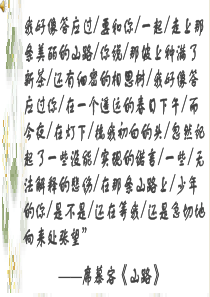 我好像答应过/要和你/一起/走上那
条美丽的山路/你说/那坡上种满了
新茶/还有细密的相思树/我好像答
应过你/在一个遥远的春日下午/而
今夜/在灯下/梳我初白的头/忽然记
起了一些没能/实现的诺言/一些/无
法解释的悲伤/在那条山路上/少年
的你/是不是/还在等我/还是急切地
向来处张望”
——席慕容《山路》